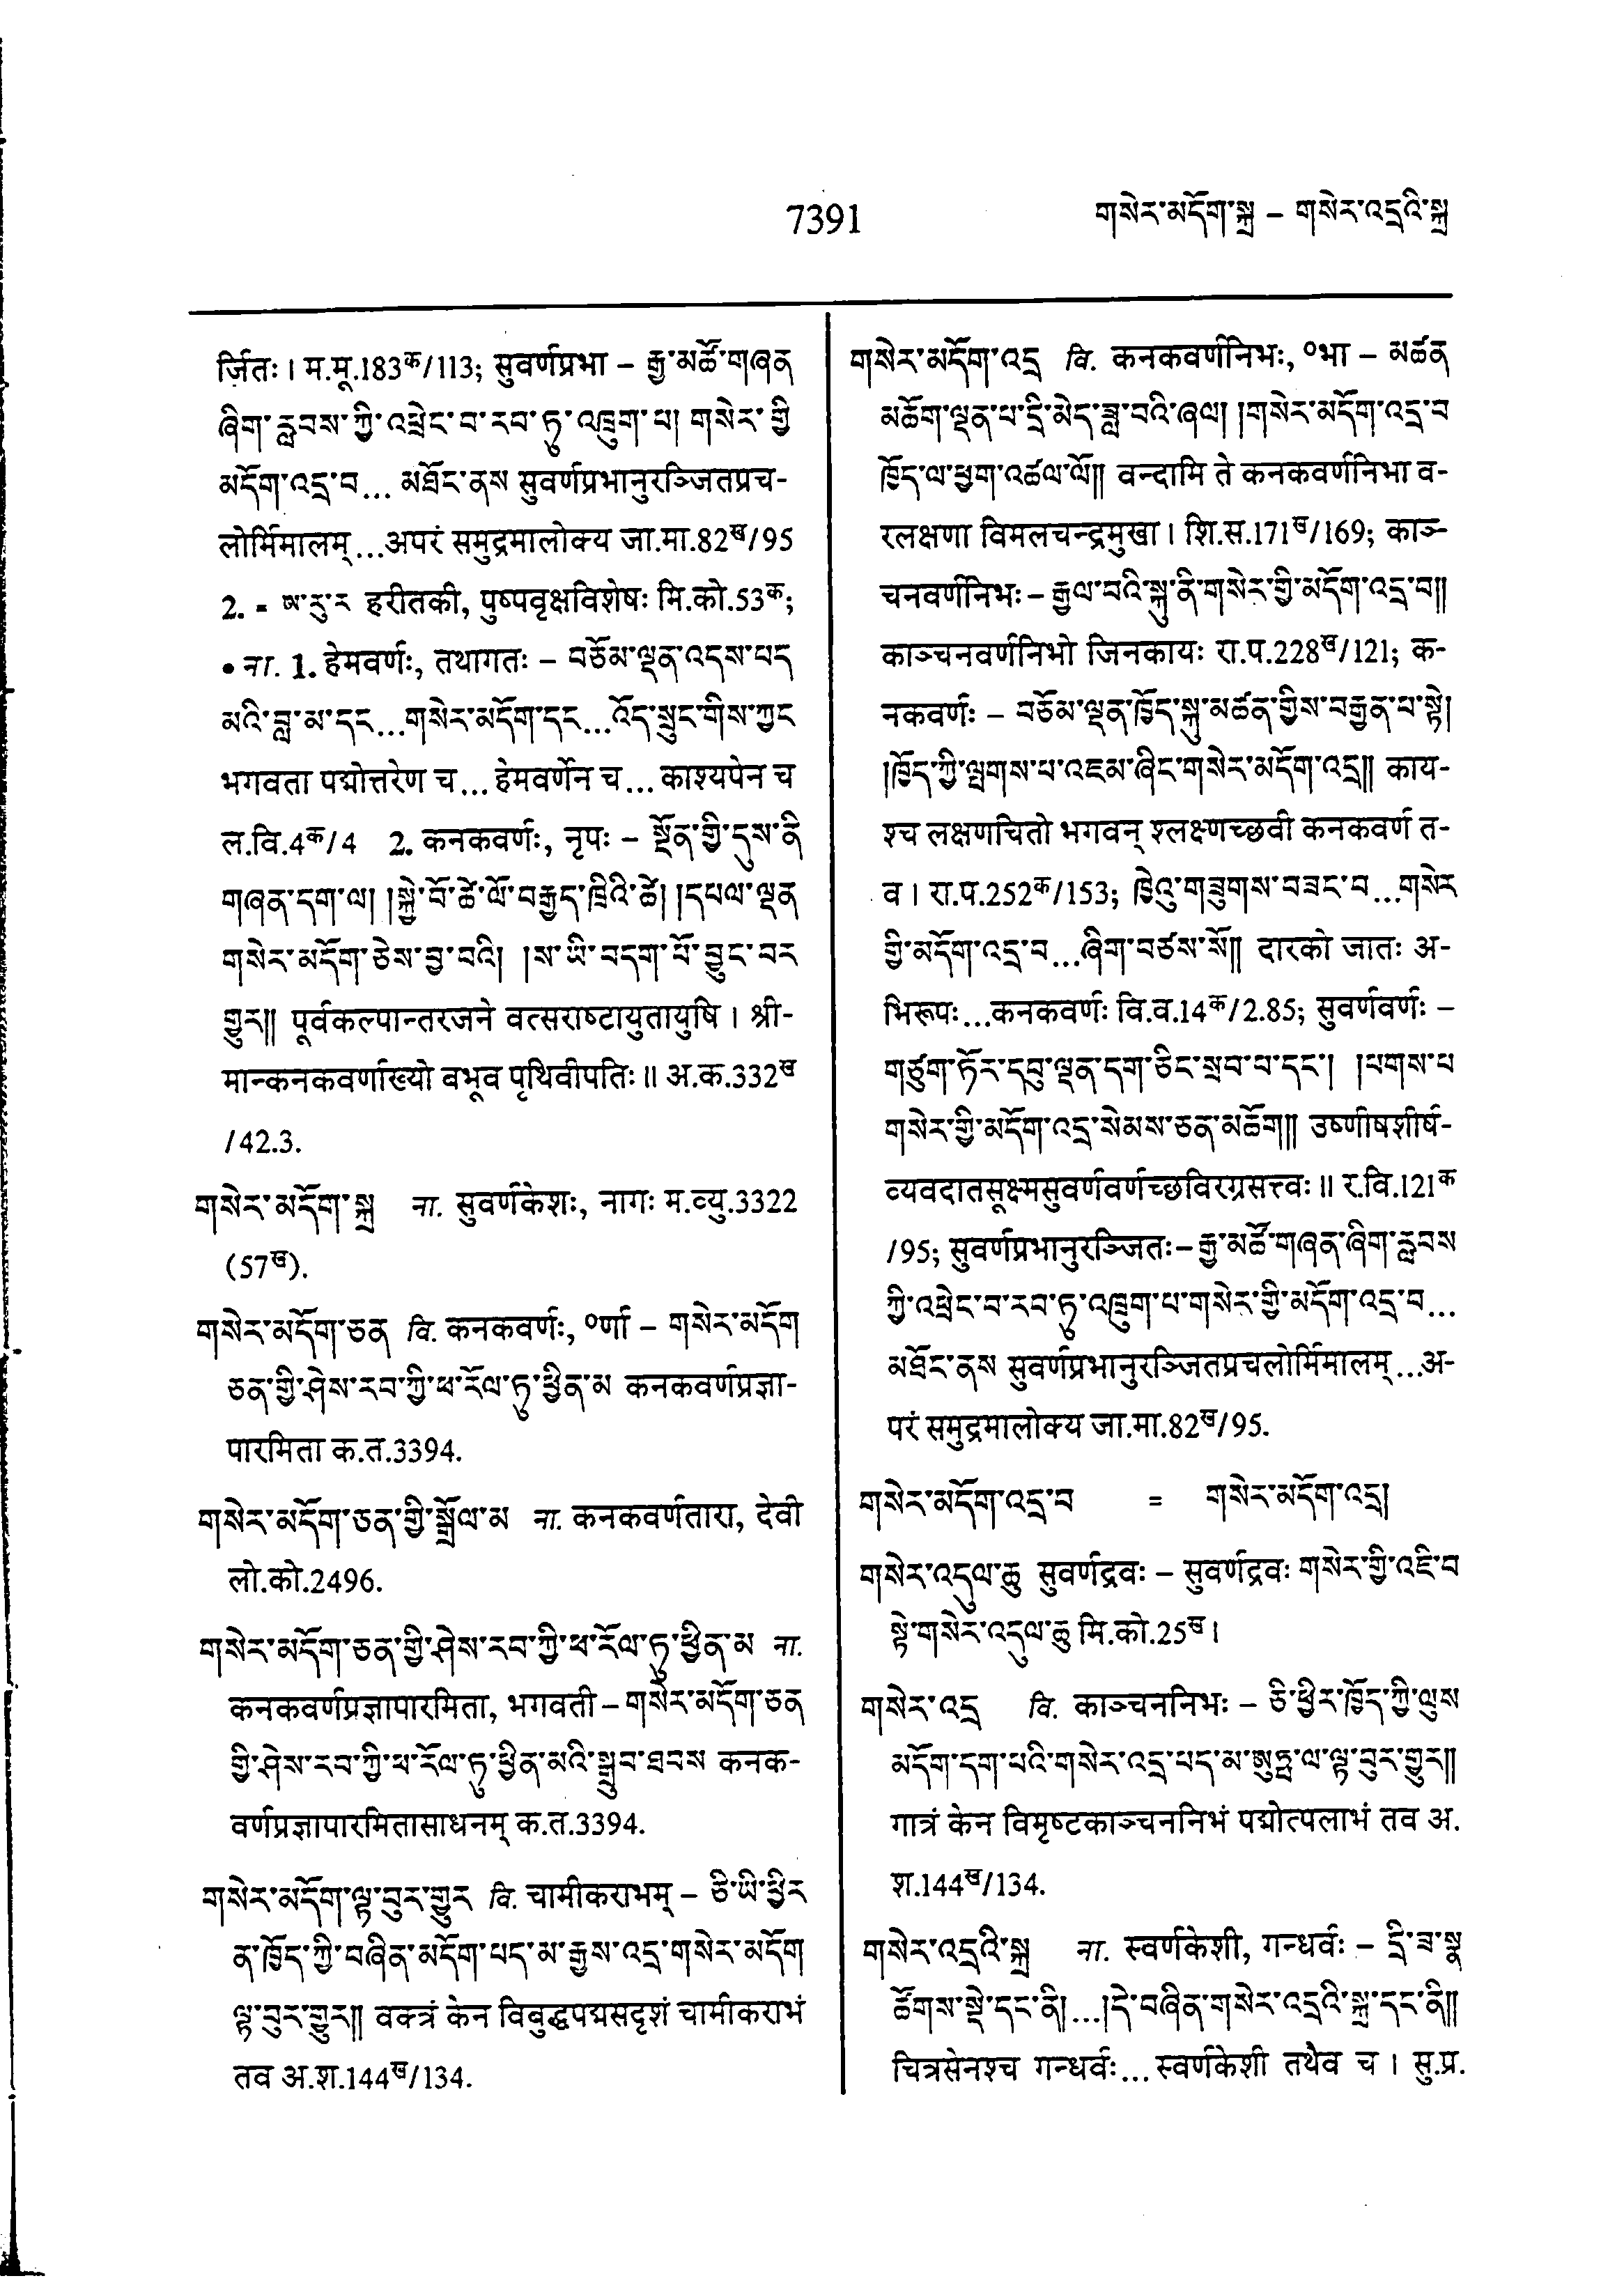 7391
གསེར་མདོག་སྐྲ – གསེར་འདྲའི་སྐྲ
र्जितः। म.मू.183क/113; सुवर्णप्रभा – རྒྱ་མཚོ་གཞན
ཞིག་རླབས་ཀྱི་འཕྲེང་བ་རབ་ཏུ་འཁྲུག་པ། གསེར་གྱི
མདོག་འདྲ་བ... མཐོང་ནས सुवर्णप्रभानुरञ्जितप्रच-
लोर्मिमालम्...अपरं समुद्रमालोक्य जा.मा.82ख/95
2. = ཨ་རུ་ར हरीतकी, पुष्पवृक्षविशेषः मि.को.53क;
• ना. 1. हेमवर्णः, तथागतः – བཅོམ་ལྡན་འདས་པད
མའི་བླ་མ་དང...གསེར་མདོག་དང...འོད་སྲུང་གིས་ཀྱང
भगवता पद्मोत्तरेण च...हेमवर्णेन च...काश्यपेन च
ल.वि.4क/4 2. कनकवर्णः, नृपः – སྔོན་གྱི་དུས་ནི
གཞན་དག་ལ། །སྐྱེ་བོ་ཚེ་ལོ་བརྒྱད་ཁྲིའི་ཚེ། །དཔལ་ལྡན
གསེར་མདོག་ཅེས་བྱ་བའི། །ས་ཡི་བདག་པོ་བྱུང་བར
གྱུར།། पूर्वकल्पान्तरजने वत्सराष्टायुतायुषि। श्री-
मान्कनकवर्णाख्यो बभूव पृथिवीपतिः॥ अ.क.332ख
/42.3.
གསེར་མདོག་སྐྲ ना. सुवर्णकेशः, नागः म.व्यु.3322
(57ख).
གསེར་མདོག་ཅན वि. कनकवर्णः, ०र्णा – གསེར་མདོག
ཅན་གྱི་ཤེས་རབ་ཀྱི་ཕ་རོལ་ཏུ་ཕྱིན་མ कनकवर्णप्रज्ञा-
पारमिता क.त.3394.
གསེར་མདོག་ཅན་གྱི་སྒྲོལ་མ ना. कनकवर्णतारा, देवी
लो.को.2496.
གསེར་མདོག་ཅན་གྱི་ཤེས་རབ་ཀྱི་ཕ་རོལ་ཏུ་ཕྱིན་མ ना.
कनकवर्णप्रज्ञापारमिता, भगवती – གསེར་མདོག་ཅན
གྱི་ཤེས་རབ་ཀྱི་ཕ་རོལ་ཏུ་ཕྱིན་མའི་སྒྲུབ་ཐབས कनक-
वर्णप्रज्ञापारमितासाधनम् क.त.3394.
གསེར་མདོག་ལྟ་བུར་གྱུར वि. चामीकराभम् – ཅི་ཡི་ཕྱིར
ན་ཁྱོད་ཀྱི་བཞིན་མདོག་པད་མ་རྒྱས་འདྲ་གསེར་མདོག
ལྟ་བུར་གྱུར།། वक्त्रं केन विबुद्धपद्मसदृशं चामीकराभं
तव अ.श.144ख/134.
གསེར་མདོག་འདྲ वि. कनकवर्णनिभः, ०भा – མཚན
མཆོག་ལྡན་པ་དྲི་མེད་ཟླ་བའི་ཞལ། །གསེར་མདོག་འདྲ་བ
ཁྱོད་ལ་ཕྱག་འཚལ་ལོ།། वन्दामि ते कनकवर्णनिभा व-
रलक्षणा विमलचन्द्रमुखा। शि.स.171ख/169; काञ्-
चनवर्णनिभः – རྒྱལ་བའི་སྐུ་ནི་གསེར་གྱི་མདོག་འདྲ་བ།།
काञ्चनवर्णनिभो जिनकायः रा.प.228ख/121; क-
नकवर्णः – བཅོམ་ལྡན་ཁྱོད་སྐུ་མཚན་གྱིས་བརྒྱན་པ་སྟེ།
།ཁྱོད་ཀྱི་ལྤགས་པ་འཇམ་ཞིང་གསེར་མདོག་འདྲ།། काय-
श्च लक्षणचितो भगवन् श्लक्ष्णच्छवी कनकवर्ण त-
व। रा.प.252क/153; ཁྱེའུ་གཟུགས་བཟང་བ...གསེར
གྱི་མདོག་འདྲ་བ...ཞིག་བཙས་སོ།། दारको जातः अ-
भिरूपः...कनकवर्णः वि.व.14क/2.85; सुवर्णवर्णः –
གཙུག་ཏོར་དབུ་ལྡན་དག་ཅིང་སྲབ་པ་དང་། །པགས་པ
གསེར་གྱི་མདོག་འདྲ་སེམས་ཅན་མཆོག།། उष्णीषशीर्ष-
व्यवदातसूक्ष्मसुवर्णवर्णच्छविरग्रसत्त्वः॥ र.वि.121क
/95; सुवर्णप्रभानुरञ्जितः – རྒྱ་མཚོ་གཞན་ཞིག་རླབས
ཀྱི་འཕྲེང་བ་རབ་ཏུ་འཁྲུག་པ་གསེར་གྱི་མདོག་འདྲ་བ...
མཐོང་ནས सुवर्णप्रभानुरञ्जितप्रचलोर्मिमालम्...अ-
परं समुद्रमालोक्य जा.मा.82ख/95.
གསེར་མདོག་འདྲ་བ = གསེར་མདོག་འདྲ།
གསེར་འདུལ་ཆུ सुवर्णद्रवः – सुवर्णद्रवः གསེར་གྱི་འཇི་བ
སྟེ་གསེར་འདུལ་ཆུ मि.को.25ख।
གསེར་འདྲ वि. काञ्चननिभः – ཅི་ཕྱིར་ཁྱོད་ཀྱི་ལུས
མདོག་དག་པའི་གསེར་འདྲ་པད་མ་ཨུཏྤ་ལ་ལྟ་བུར་གྱུར།།
गात्रं केन विमृष्टकाञ्चननिभं पद्मोत्पलाभं तव अ.
श.144ख/134.
གསེར་འདྲའི་སྐྲ ना. स्वर्णकेशी, गन्धर्वः – དྲི་ཟ་སྣ
ཚོགས་སྡེ་དང་ནི།...།དེ་བཞིན་གསེར་འདྲའི་སྐྲ་དང་ནི།།
चित्रसेनश्च गन्धर्वः...स्वर्णकेशी तथैव च। सु.प्र.